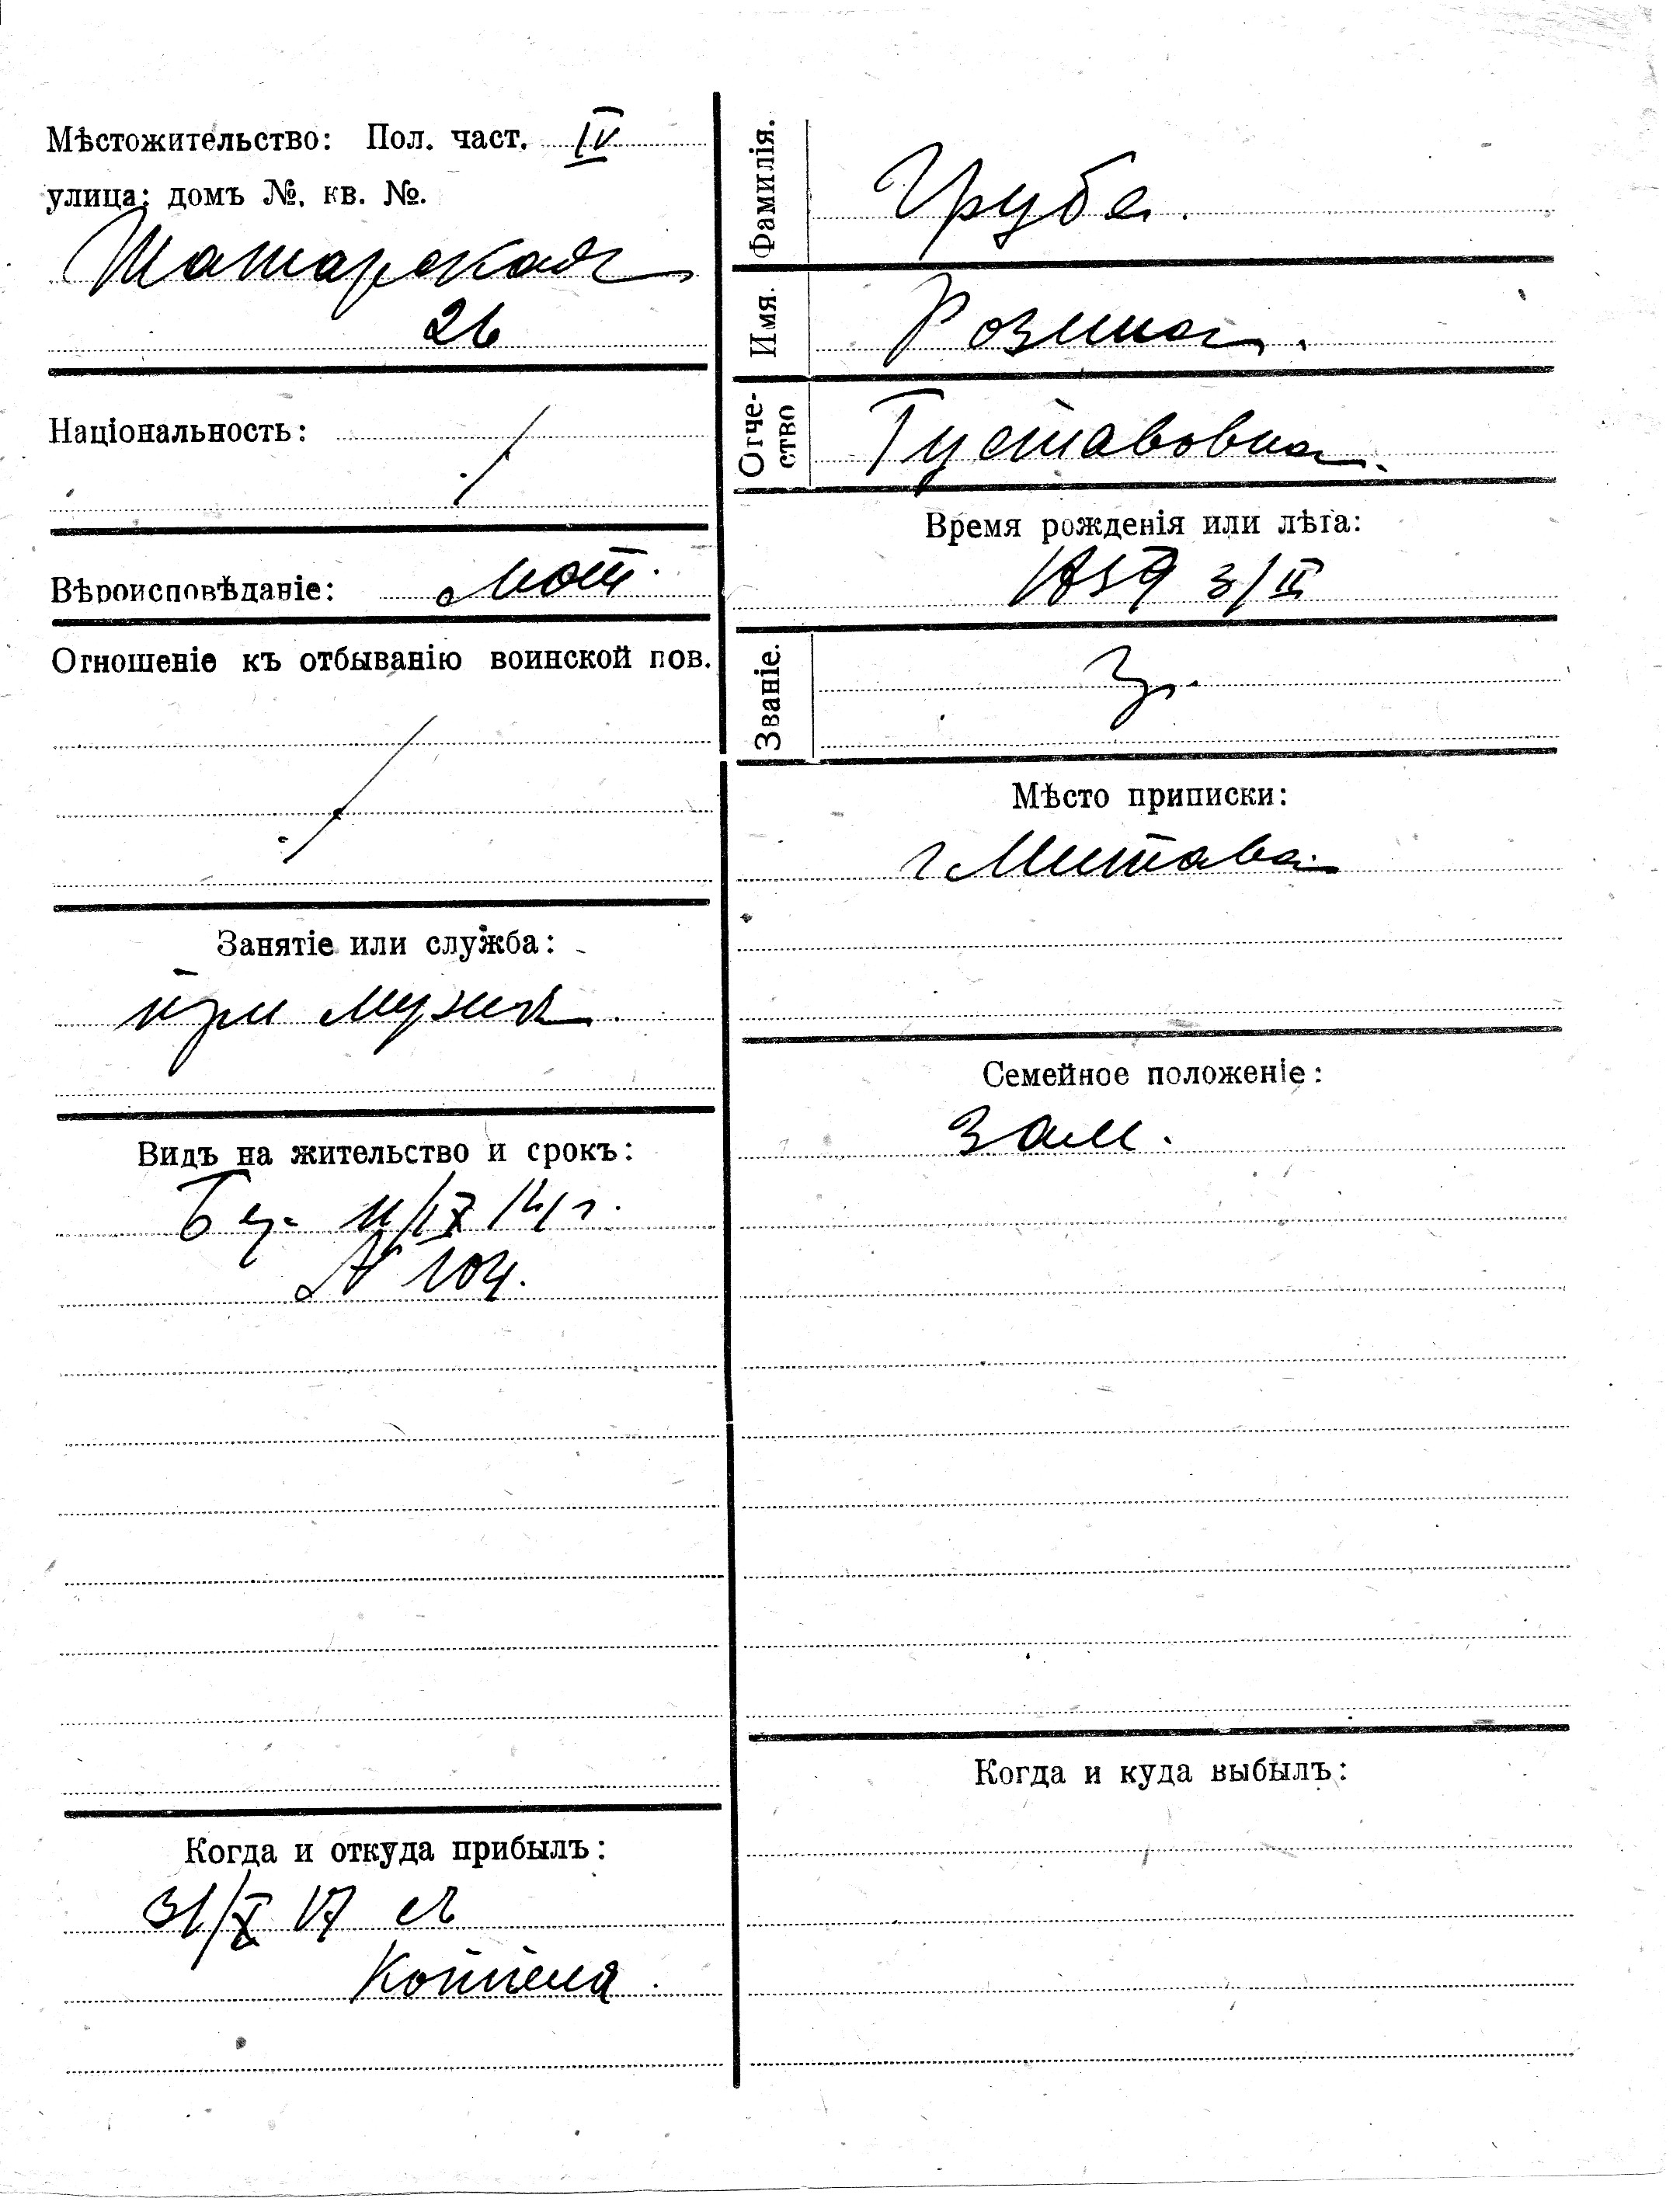 Мѣстожительство: Пол. част. IV
улица: домъ №. кв. №.
Татарская
26
Національность:
Вѣроисповѣданіе: Лют.
Отношеніе къ отбыванію воинской пов.
Занятіе или служба:
при мужѣ.
Видъ на жительство и срокъ:
11/IX 14 г.
№ 104.
Когда и откуда прибылъ:
31/X 17 съ
Фамилія. Грубе.
Имя. Розина.
Отче-
ство Густавовна.
Время рожденія или лѣта:
3/II
Званіе.
Мѣсто приписки:
г Митава
Семейное положеніе:
Зам.
Когда и куда выбылъ: